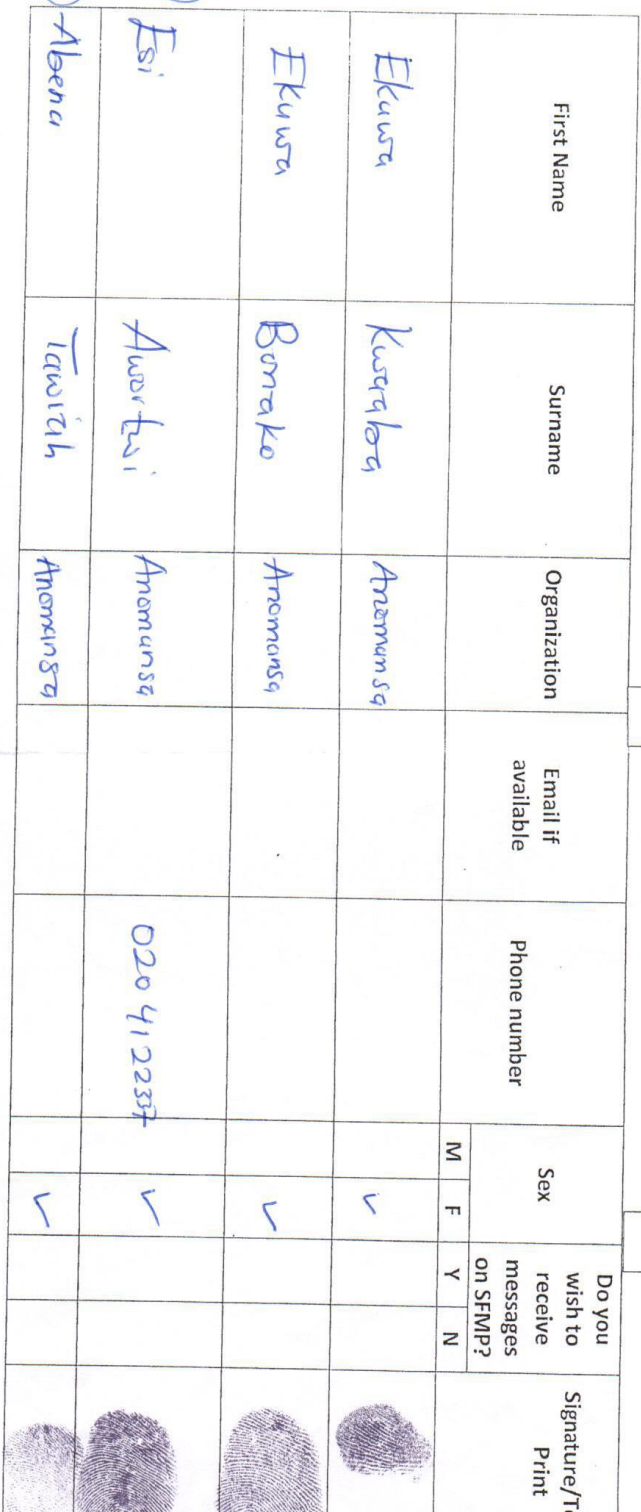 First Name Surname Organization Email if available Phone number Sex M F Do you wish to receive messages on SFMP? Y N Signature/ Print
Ekuwa Kwaaba Anomansa ✓
Ekuwa Bonako Anomansa ✓
Esi Awortwi Anomansa 020 4122337 ✓
Abena Tawiah Anomansa ✓